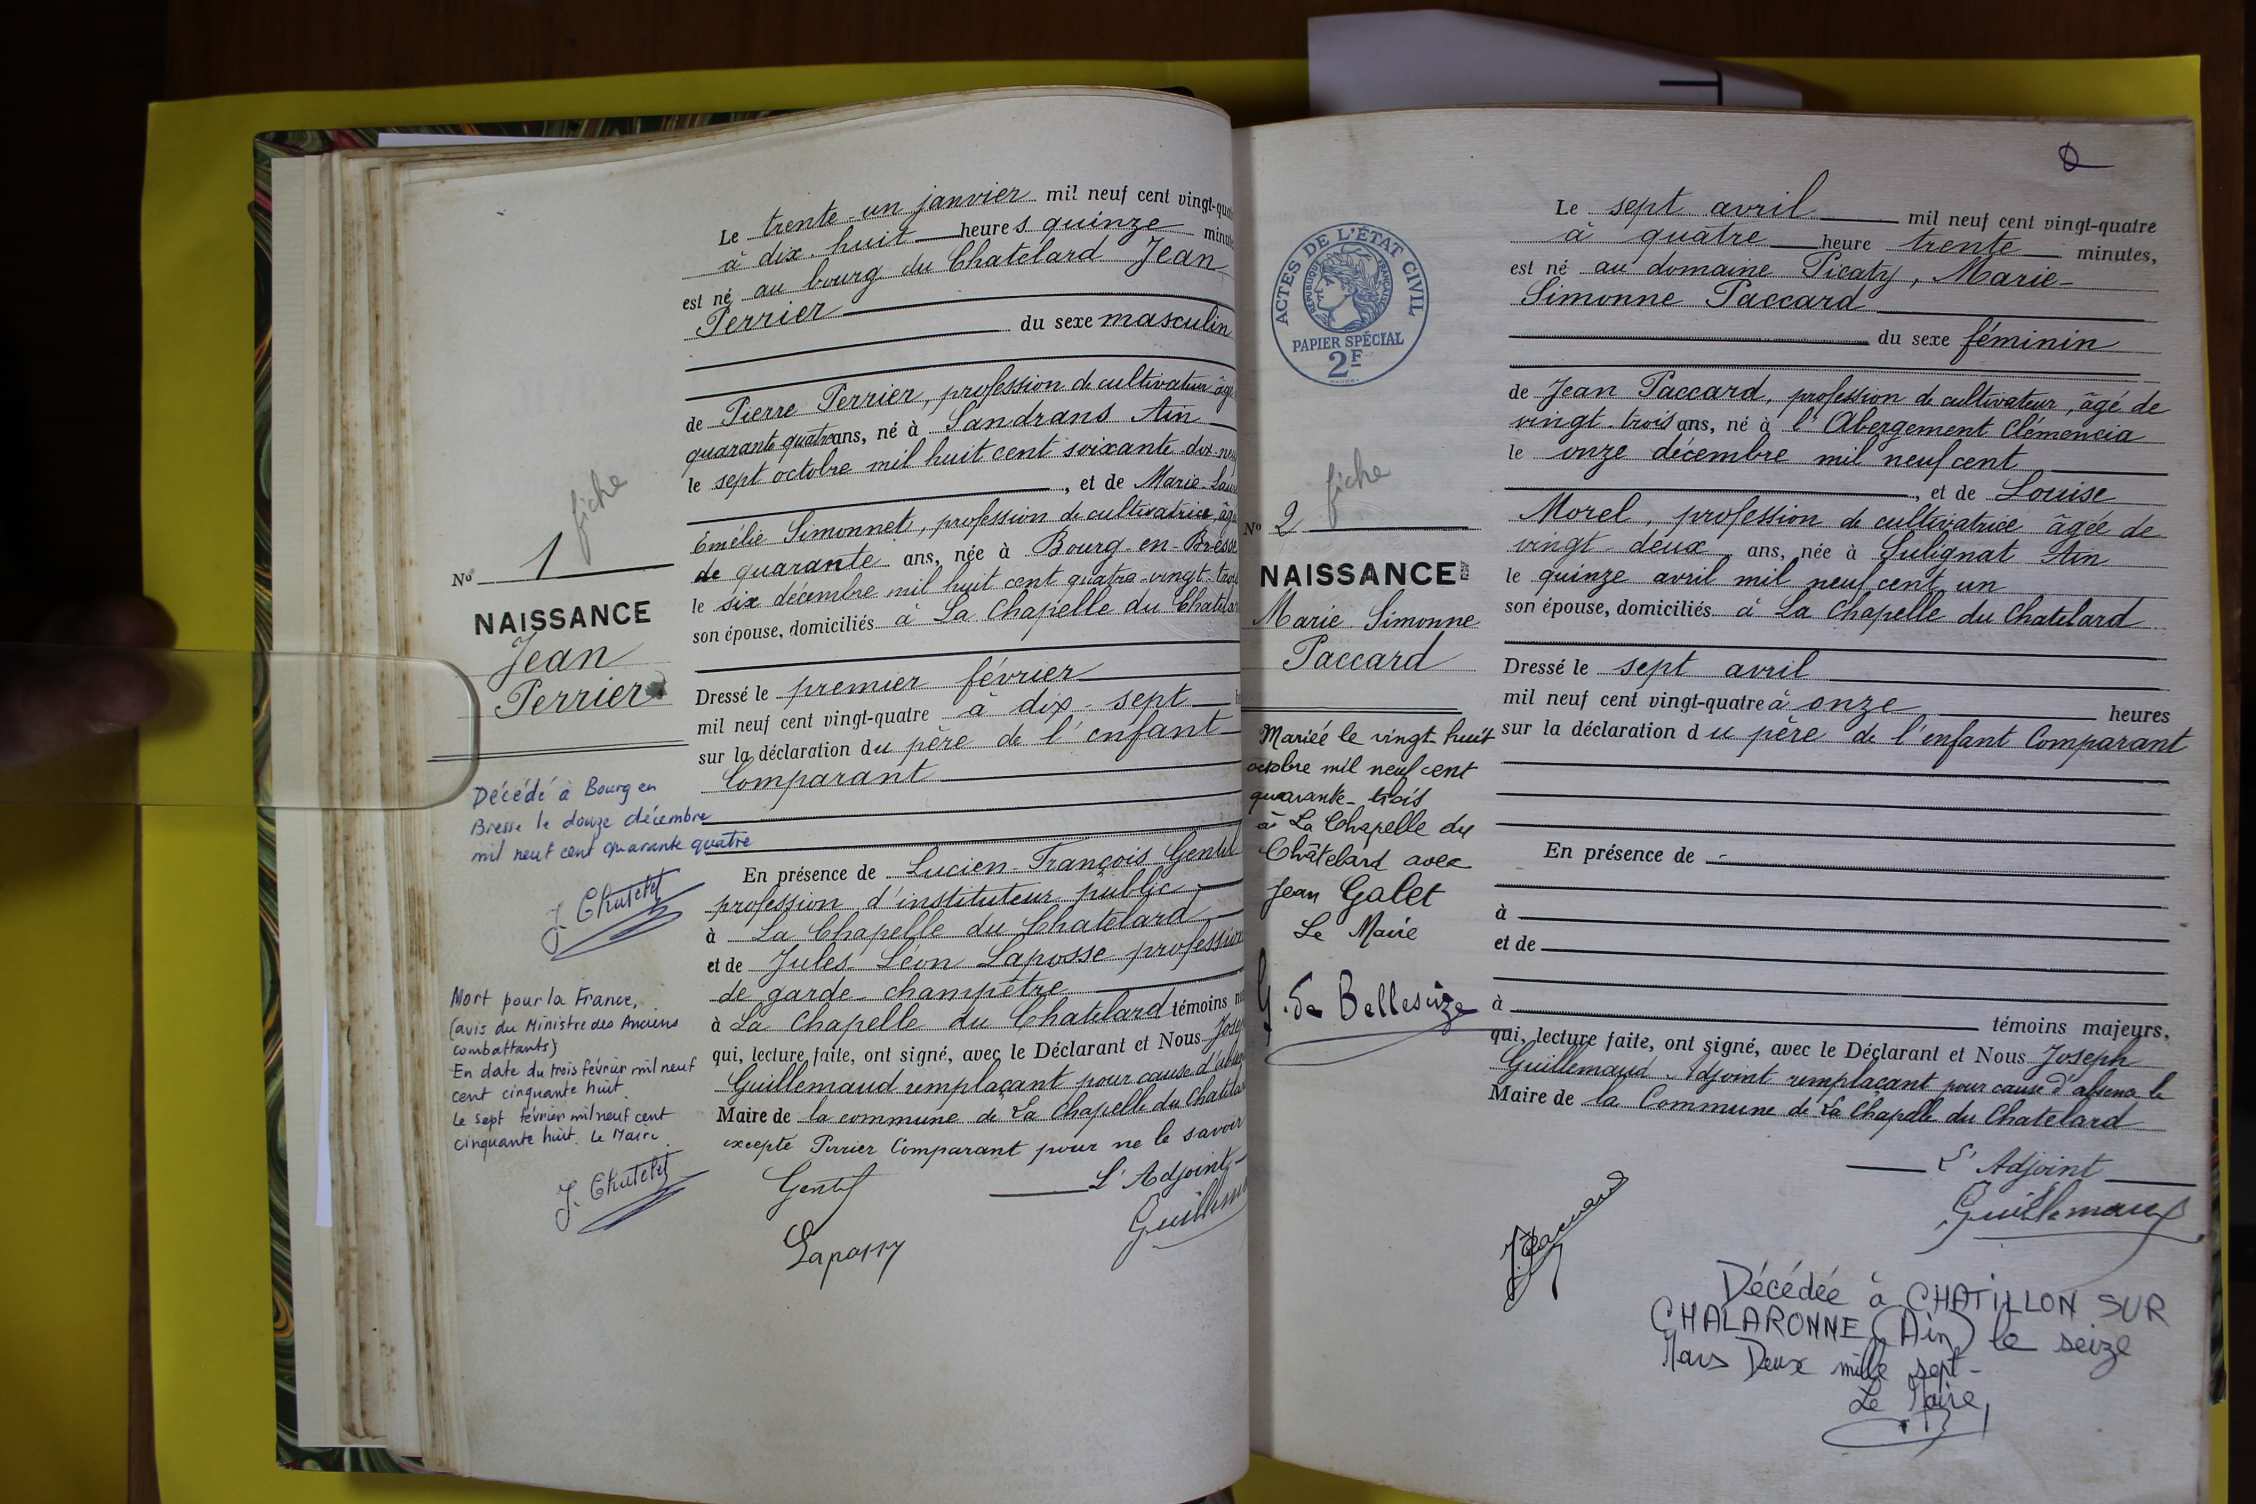 Le trente-un janvier mil neuf cent vingt-qua
à dix huit heures quinze minu
est né au bourg du Chatelard Jean
Perrier
du sexe masculin
de Pierre Perrier, profession de cultivateur âgé
quarante quatre ans, né à Sandrans Ain
le sept octobre mil huit cent soixante dix-neu
, et de Marie-Lau
Emélie Simonnet, profession de cultivatrice âgé
de quarante ans, née à Bourg-en-Bresse
le six décembre mil huit cent quatre-vingt-trois
son épouse, domiciliés à La Chapelle du Chatelar
Dressé le premier février
mil neuf cent vingt-quatre à dix-sept h
sur la déclaration du père de l'enfant
Comparant
En présence de Lucien-François Gentil
profession d'instituteur public
à La Chapelle du Chatelard
et de Jules Léon Laposse profession
de garde-champêtre
à La Chapelle du Chatelard témoins m
qui, lecture faite, ont signé, avec le Déclarant et Nous Jose
Guillemaud remplaçant pour cause d'absen
Maire de la commune de La Chapelle du Chatela
excepté Perrier Comparant pour ne le savoir
L'Adjoint
Gentil
Guillem
Laposse
No 1
fiche
NAISSANCE
Jean
Perrier
Décédé à Bourg en
Bresse le douze décembre
mil neuf cent quarante quatre
J. Chatelet
Mort pour la France,
(avis du Ministre des Anciens
combattants)
En date du trois février mil neuf
cent cinquante huit.
Le sept février mil neuf cent
cinquante huit. Le Maire.
J. Chatelet
2
ACTES DE L'ÉTAT CIVIL
RÉPUBLIQUE FRANÇAISE
PAPIER SPÉCIAL
2F
No 2
fiche
NAISSANCE
Marie Simonne
Paccard
Mariée le vingt-huit
octobre mil neuf cent
quarante-trois
à La Chapelle du
Châtelard avec
Jean Galet
Le Maire
G. de Bellescize
Le sept avril mil neuf cent vingt-quatre
à quatre heure trente minutes,
est né au domaine Picaty, Marie-
Simonne Paccard
du sexe féminin
de Jean Paccard, profession de cultivateur, âgé de
vingt trois ans, né à l'Abergement Clémencia
le onze décembre mil neuf cent
, et de Louise
Morel, profession de cultivatrice âgée de
vingt-deux ans, née à Sulignat Ain
le quinze avril mil neuf cent un
son épouse, domiciliés à La Chapelle du Chatelard
Dressé le sept avril
mil neuf cent vingt-quatre à onze heures
sur la déclaration du père de l'enfant Comparant
En présence de -
à
et de
à
témoins majeurs,
qui, lecture faite, ont signé, avec le Déclarant et Nous Joseph
Guillemaud Adjoint remplaçant pour cause d'absence le
Maire de la Commune de La Chapelle du Chatelard
L'Adjoint
J. Paccard
Guillemaud
Décédée à CHATILLON SUR
CHALARONNE (Ain) le seize
Mars Deux mille sept-
Le Maire,